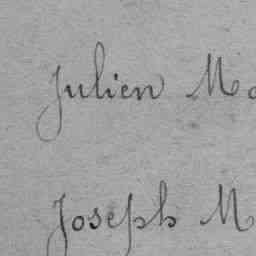 Julien Mo
Joseph M